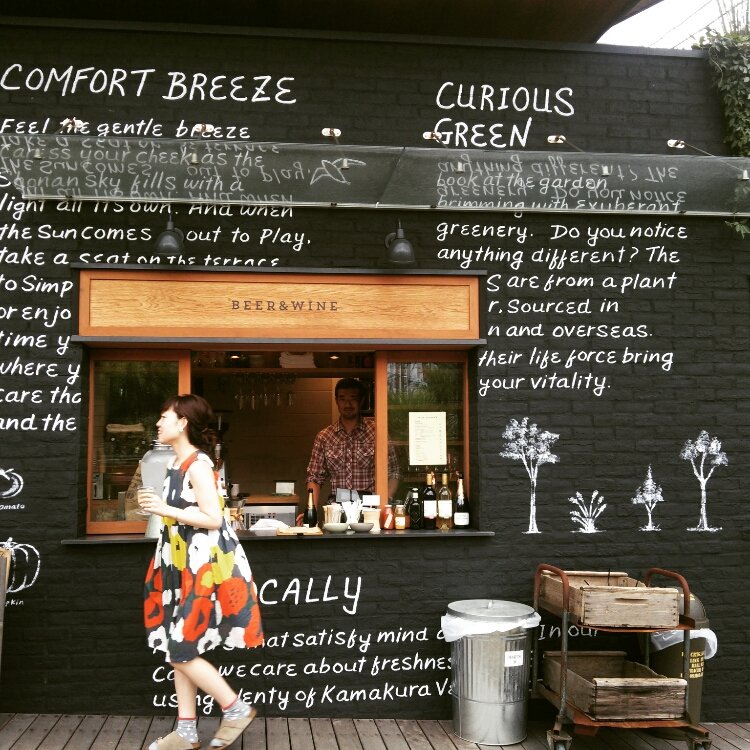 COMFORT BREEZE
Feel the gentle breeze
caress your cheek as the
sky fills with a
light all its own. And when
the Sun comes out to Play,
take a seat on the terrace
to Simp
or enjo
time y
where y
care tha
and the
CURIOUS
GREEN
Look at the garden
brimming with exuberant
greenery. Do you notice
anything different? The
S are from a plant
r, Sourced in
n and overseas.
their life force bring
your vitality.
BEER&WINE
CALLY
that satisfy mind a
In our
we care about freshness
using plenty of Kamakura Ve